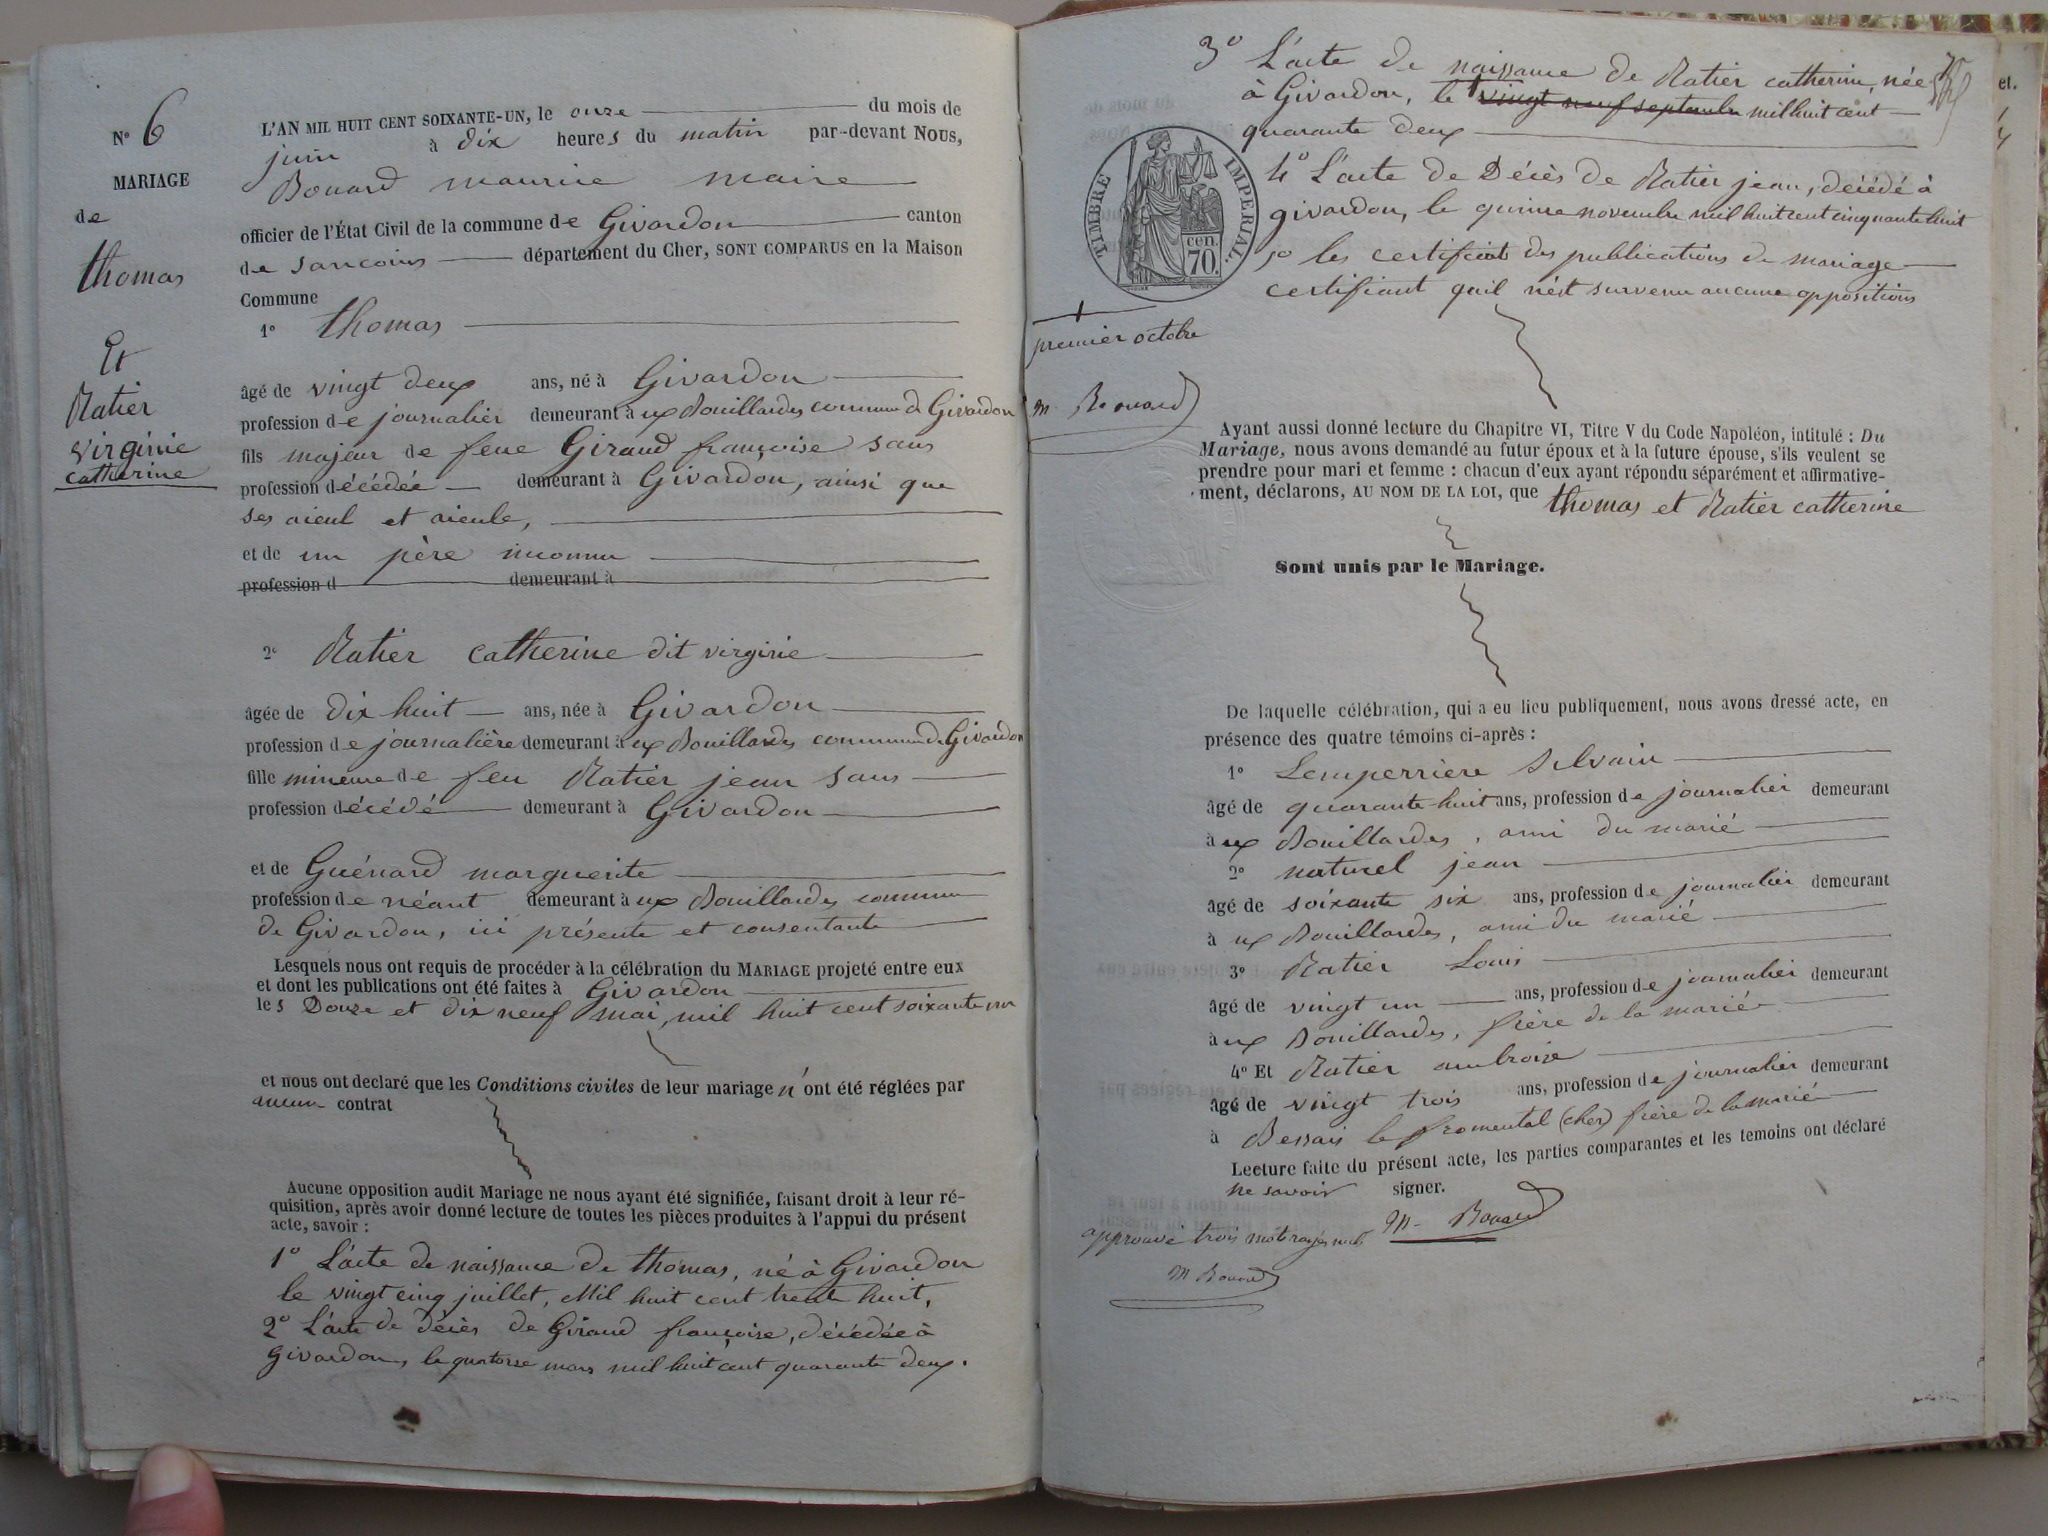 N° 6
MARIAGE
de
thomas
Et
Ratier
virginie
catherine
L'AN MIL HUIT CENT SOIXANTE-UN, le onze du mois de
juin à dix heures du matin par-devant NOUS,
Bouard maurice maire
officier de l'État Civil de la commune de Givardon canton
de Sancoins département du Cher, SONT COMPARUS en la Maison
Commune
1° thomas
âgé de vingt deux ans, né à Givardon
profession de journalier demeurant à ux Bouillardes commune de Givardon
fils majeur de feue Giraud françoise sans
profession décédée demeurant à Givardon, ainsi que
ses aieul et aieule,
et de un père inconnu
profession d demeurant à
2° Ratier catherine dit virginie
âgée de dix huit ans, née à Givardon
profession de journalière demeurant à ux Bouillardes commune de Givardon
fille mineure de feu Ratier jean sans
profession décédé demeurant à Givardon
et de Guénard marguerite
profession de néant demeurant à ux Bouillardes commune
de Givardon, ici présente et consentante
Lesquels nous ont requis de procéder à la célébration du MARIAGE projeté entre eux
et dont les publications ont été faites à Givardon
les Douze et dix neuf mai, mil huit cent soixante un
et nous ont declaré que les Conditions civiles de leur mariage n'ont été réglées par
aucun contrat
Aucune opposition audit Mariage ne nous ayant été signifiée, faisant droit à leur ré-
quisition, après avoir donné lecture de toutes les pièces produites à l'appui du présent
acte, savoir :
1° L'acte de naissance de thomas, né à Givardon
le vingt cinq juillet, Mil huit cent trente huit,
2° L'acte de décès de Giraud françoise, décédée à
Givardon, le quatorze mars mil huit cent quarante deux.
3° L'acte de naissance de Ratier catherine, née
à Givardon, le vingt neuf septembre mil huit cent
quarante deux
4° L'acte de Décès de Ratier jean, décédé à
givardon, le quinze novembre mil huit cent cinquante huit
5° les certificat des publications de mariage
certifiant qu'il n'est survenu aucune oppositions
TIMBRE IMPERIAL.
cen.
70.
premier octobre
M. Bouard
Ayant aussi donné lecture du Chapitre VI, Titre V du Code Napoléon, intitulé : Du
Mariage, nous avons demandé au futur époux et à la future épouse, s'ils veulent se
prendre pour mari et femme : chacun d'eux ayant répondu séparément et affirmative-
ment, déclarons, AU NOM DE LA LOI, que thomas et Ratier catherine
Sont unis par le Mariage.
De laquelle célébration, qui a eu lieu publiquement, nous avons dressé acte, en
présence des quatre témoins ci-après :
1° Lemperrière Silvain
âgé de quarante huit ans, profession de journalier demeurant
à ux Bouillardes, ami du marié
2° naturel jean
âgé de soixante six ans, profession de journalier demeurant
à ux Bouillardes, ami du marié
3° Ratier Louis
âgé de vingt un ans, profession de journalier demeurant
à ux Bouillardes, frère de la marié
4° Et Ratier ambroise
âgé de vingt trois ans, profession de journalier demeurant
à Bessais le fromental (cher) frère de la marié
Lecture faite du présent acte, les parties comparantes et les temoins ont déclaré
ne savoir signer.
approuvé trois mots rayés nuls M. Bouard
M Bouard
et.